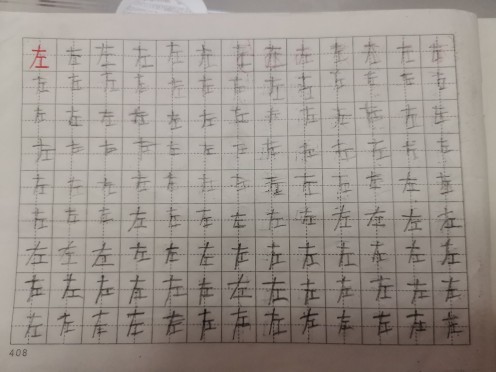 左左左左左左左左左左左左左
左左左左左左左左左左左左左
左左左左左左左左左左左左左
左左左左左左左左左左左左左
左左左左左左左左左左左左左
左左左左左左左左左左左左左
左左左左左左左左左左左左左
左左左左左左左左左左左左左
左左左左左左左左左左左左左
408